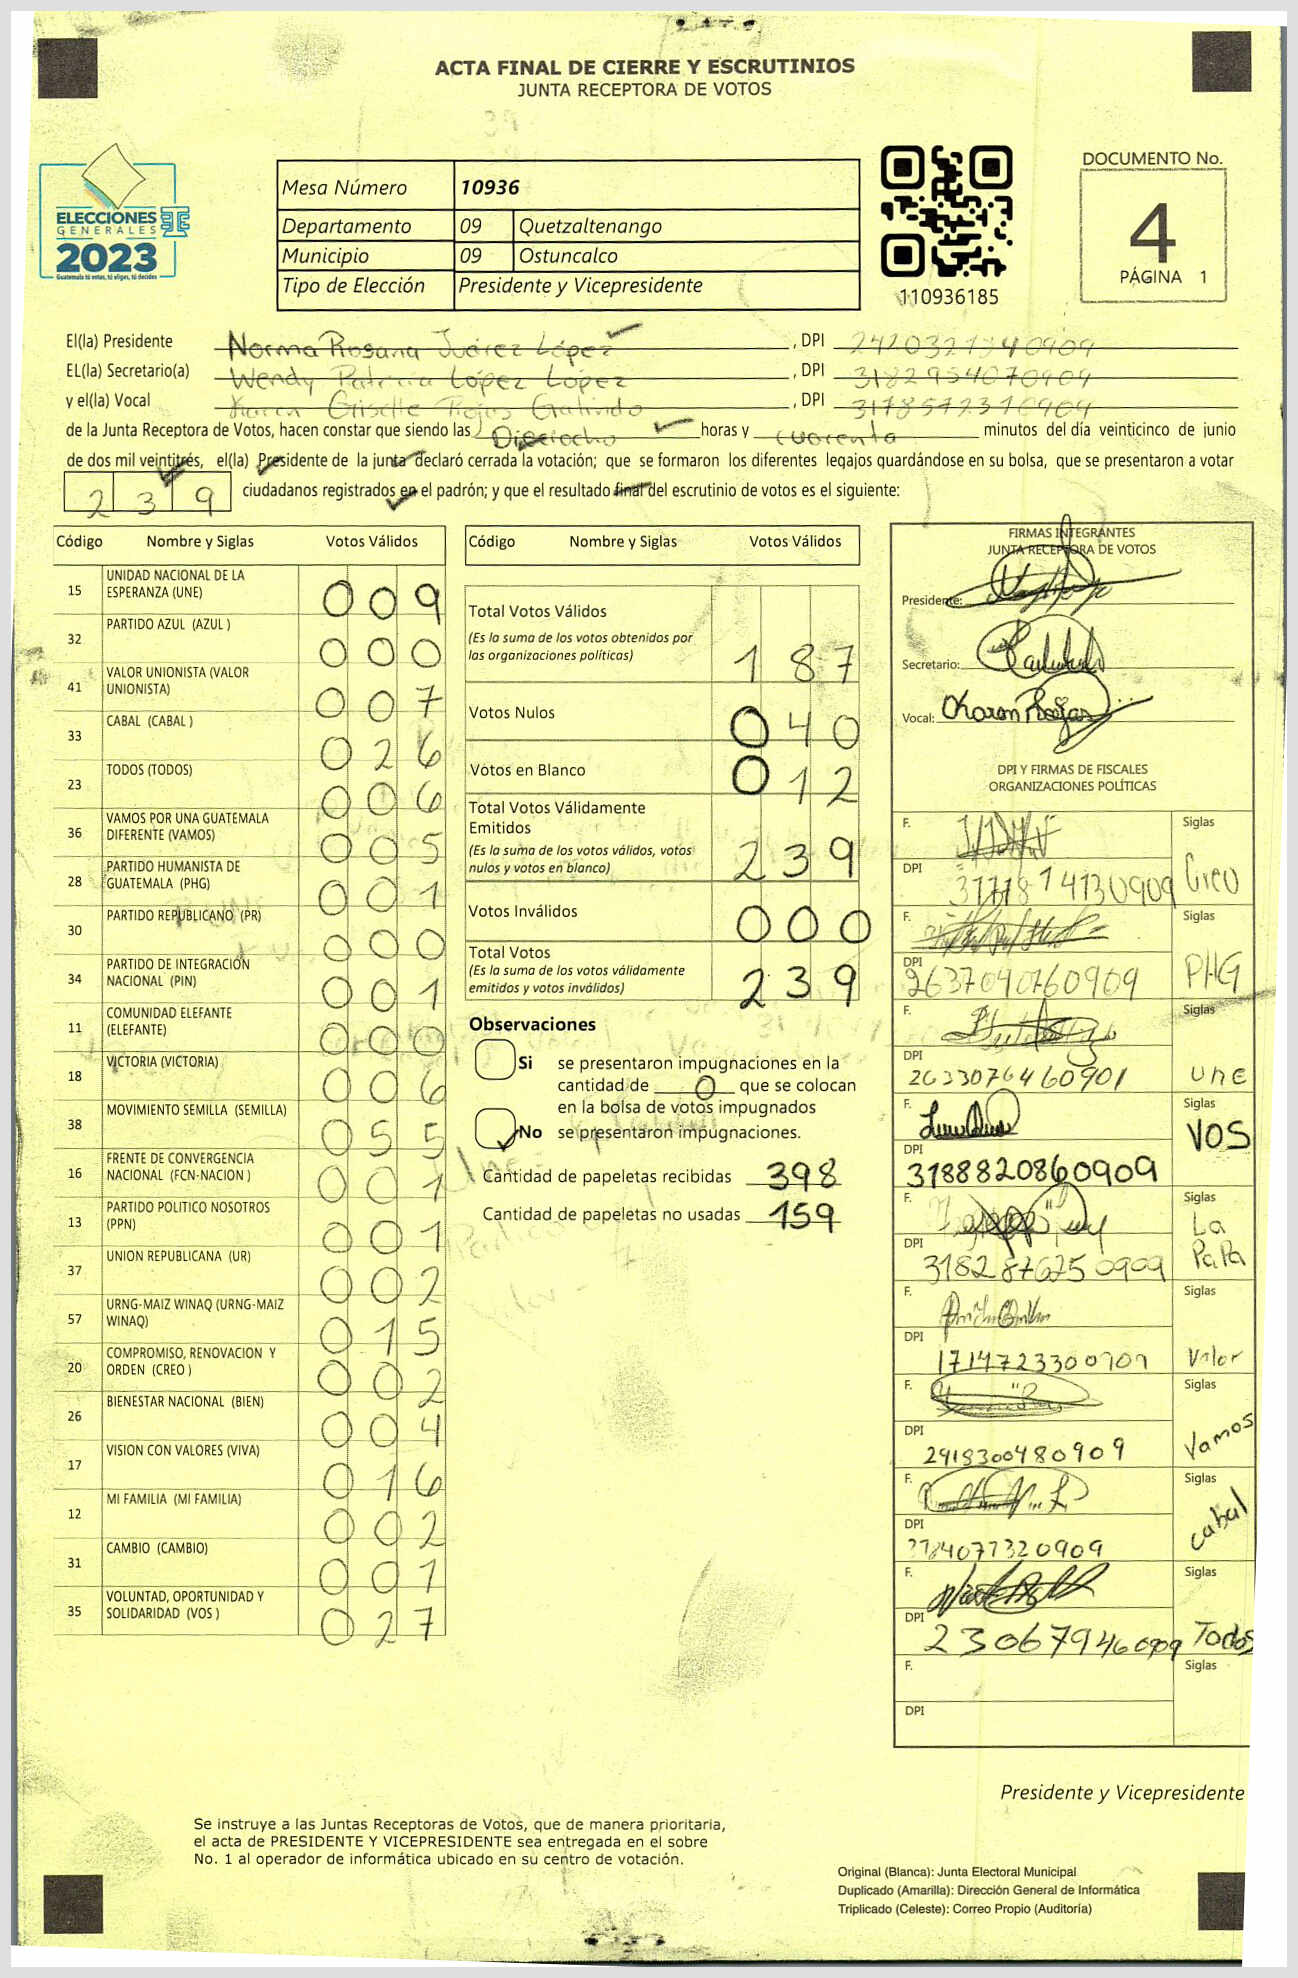 ACTA FINAL DE CIERRE Y ESCRUTINIOS
JUNTA RECEPTORA DE VOTOS
ELECCIONES
GENERALES
2023
Guatemala tú votas, tú eliges, tú decides
Mesa Número 10936
Departamento 09 Quetzaltenango
Municipio 09 Ostuncalco
Tipo de Elección Presidente y Vicepresidente
110936185
DOCUMENTO No.
4
PÁGINA 1
El(la) Presidente Norma Rosana Juárez López, DPI 2420321340909
EL(la) Secretario(a) Wendy Patricia López López, DPI 3182954070909
y el(la) Vocal Karen Giselle Rojas Galindo, DPI 3178572310909
de la Junta Receptora de Votos, hacen constar que siendo las Dieciocho horas y cuarenta minutos del día veinticinco de junio
de dos mil veintitrés, el(la) Presidente de la junta declaró cerrada la votación; que se formaron los diferentes legajos guardándose en su bolsa, que se presentaron a votar
239 ciudadanos registrados en el padrón; y que el resultado final del escrutinio de votos es el siguiente:
Código Nombre y Siglas Votos Válidos
15 UNIDAD NACIONAL DE LA ESPERANZA (UNE) 009
32 PARTIDO AZUL (AZUL ) 000
41 VALOR UNIONISTA (VALOR UNIONISTA) 007
33 CABAL (CABAL ) 026
23 TODOS (TODOS) 006
36 VAMOS POR UNA GUATEMALA DIFERENTE (VAMOS) 005
28 PARTIDO HUMANISTA DE GUATEMALA (PHG) 001
30 PARTIDO REPUBLICANO (PR) 000
34 PARTIDO DE INTEGRACIÓN NACIONAL (PIN) 001
11 COMUNIDAD ELEFANTE (ELEFANTE) 000
18 VICTORIA (VICTORIA) 006
38 MOVIMIENTO SEMILLA (SEMILLA) 055
16 FRENTE DE CONVERGENCIA NACIONAL (FCN-NACION ) 001
13 PARTIDO POLITICO NOSOTROS (PPN) 001
37 UNION REPUBLICANA (UR) 002
57 URNG-MAIZ WINAQ (URNG-MAIZ WINAQ) 015
20 COMPROMISO, RENOVACION Y ORDEN (CREO ) 002
26 BIENESTAR NACIONAL (BIEN) 004
17 VISION CON VALORES (VIVA) 016
12 MI FAMILIA (MI FAMILIA) 002
31 CAMBIO (CAMBIO) 001
35 VOLUNTAD, OPORTUNIDAD Y SOLIDARIDAD (VOS ) 027
Código Nombre y Siglas Votos Válidos
Total Votos Válidos
(Es la suma de los votos obtenidos por
las organizaciones políticas) 187
Votos Nulos 040
Votos en Blanco 012
Total Votos Válidamente
Emitidos
(Es la suma de los votos válidos, votos
nulos y votos en blanco) 239
Votos Inválidos 000
Total Votos
(Es la suma de los votos válidamente
emitidos y votos inválidos) 239
Observaciones
Si se presentaron impugnaciones en la
cantidad de 0 que se colocan
en la bolsa de votos impugnados
No se presentaron impugnaciones.
Cantidad de papeletas recibidas 398
Cantidad de papeletas no usadas 159
FIRMAS INTEGRANTES
JUNTA RECEPTORA DE VOTOS
Presidente:
Secretario:
Vocal: Karen Rojas
DPI Y FIRMAS DE FISCALES
ORGANIZACIONES POLÍTICAS
F. Siglas
DPI Creo
F. Siglas
DPI 2637040760909 PHG
F. Siglas
DPI 2633076460901 une
F. Siglas
DPI 3188820860909 VOS
F. Siglas
DPI 3182876750909 La PaPa
F. Siglas
DPI 1714723300909 Valor
F. Siglas
DPI 2918300480909 Vamos
F. Siglas
DPI 3184077320909 cabal
F. Siglas
DPI 230679460909 Todos
F. Siglas
DPI
Presidente y Vicepresidente
Se instruye a las Juntas Receptoras de Votos, que de manera prioritaria,
el acta de PRESIDENTE Y VICEPRESIDENTE sea entregada en el sobre
No. 1 al operador de informática ubicado en su centro de votación.
Original (Blanca): Junta Electoral Municipal
Duplicado (Amarilla): Dirección General de Informática
Triplicado (Celeste): Correo Propio (Auditoría)